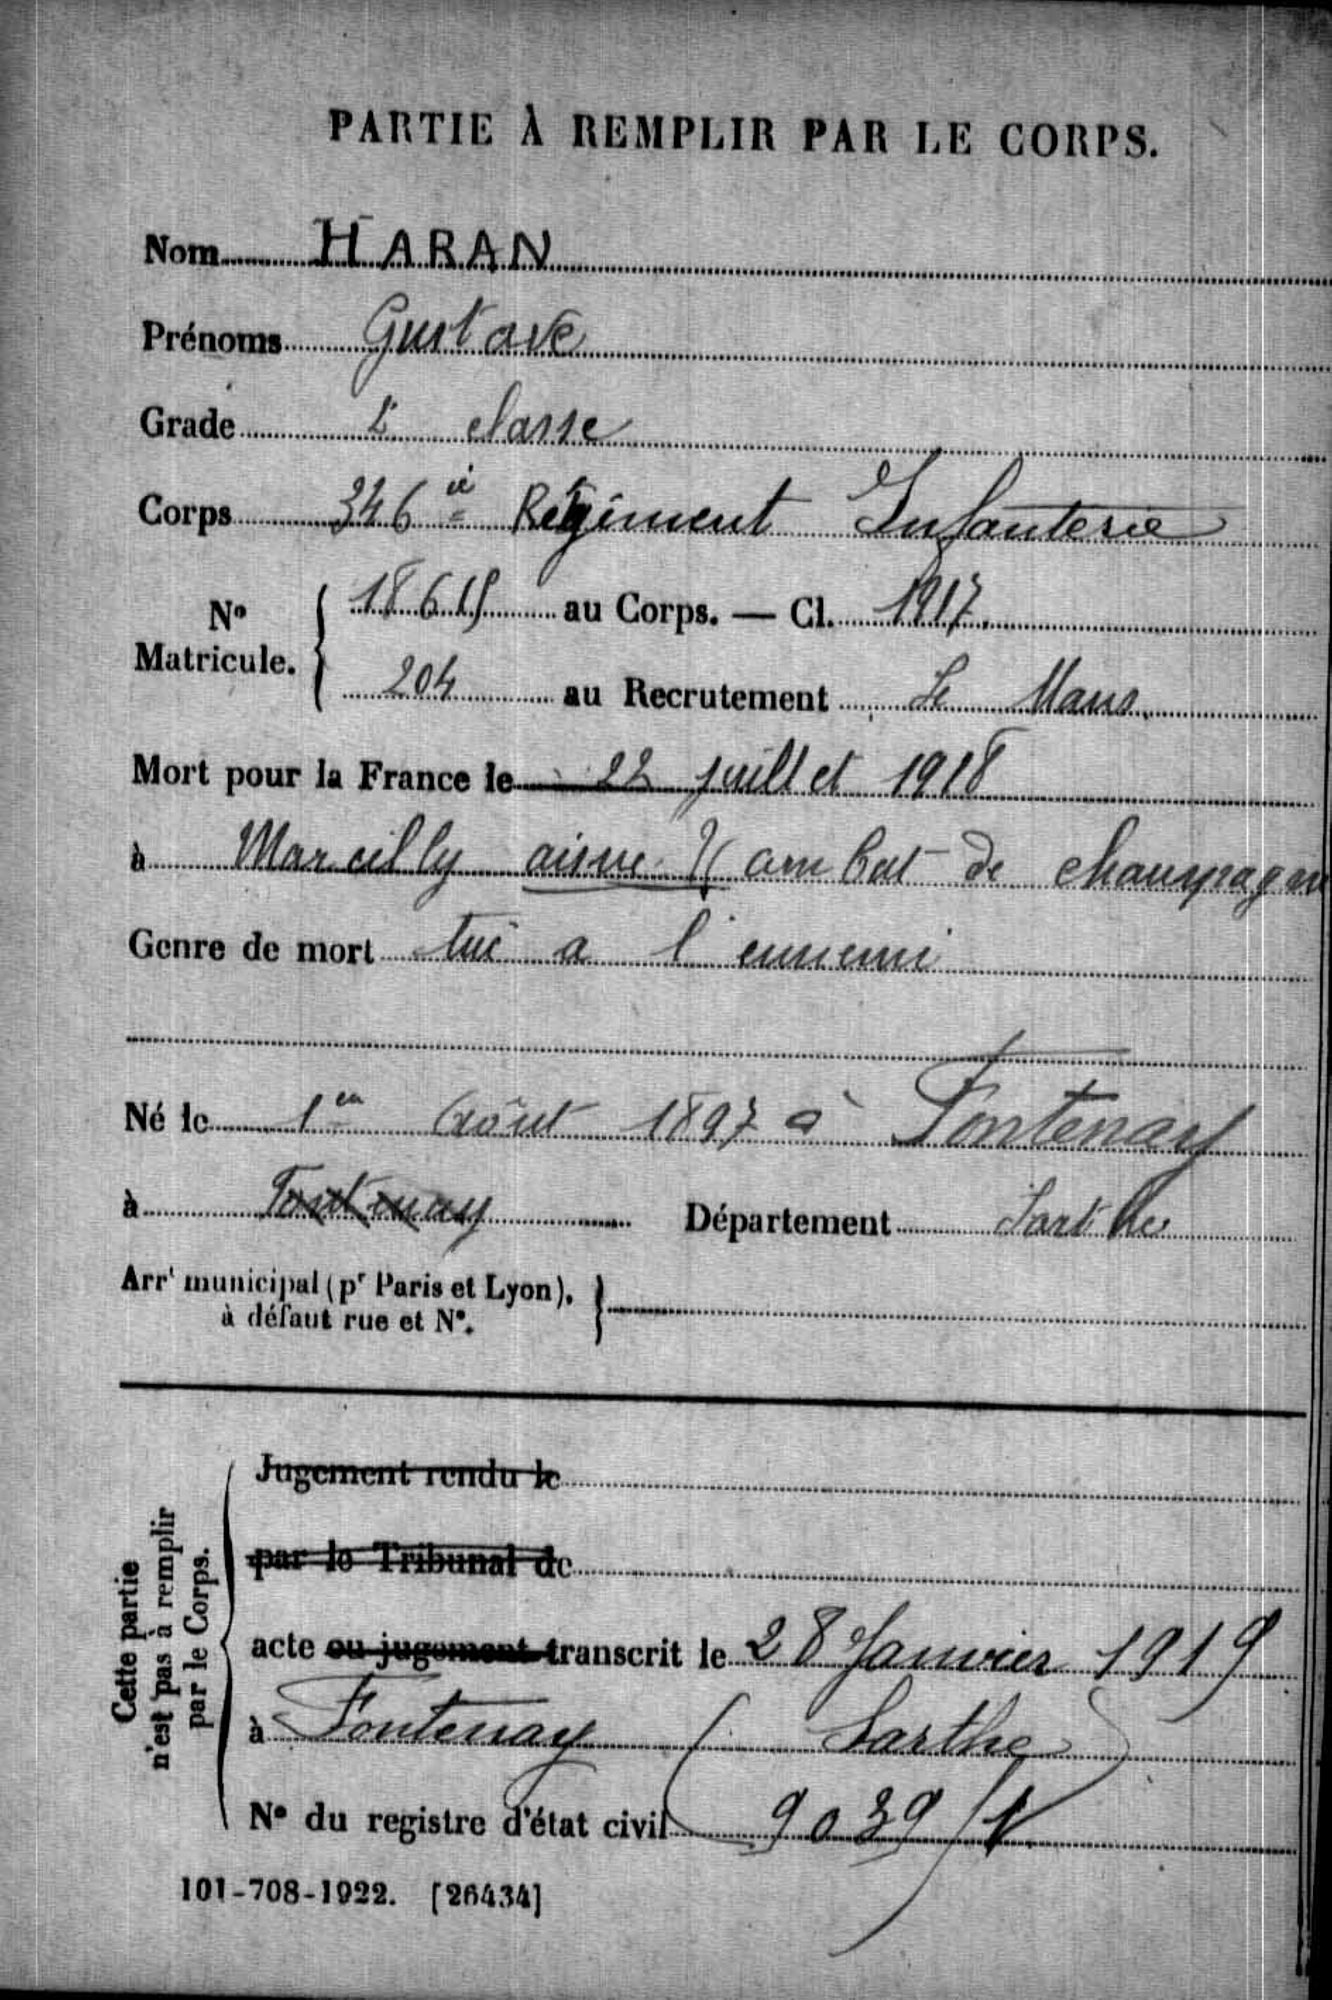 PARTIE À REMPLIR PAR LE CORPS.
Nom HARAN
Prénoms Gustave
Grade 2e classe
Corps 346e Régiment Infanterie
No Matricule. 18615 au Corps. — Cl. 1917.
204 au Recrutement Le Mans.
Mort pour la France le 22 juillet 1918
à Marcilly aisne combat de champagne
Genre de mort tué a l'ennemi
Né le 1er Août 1897 à Fontenay
à Fontenay Département Sarthe
Arrt municipal (pr Paris et Lyon),
à défaut rue et No.
Cette partie
n'est pas à remplir
par le Corps.
Jugement rendu le
par le Tribunal de
acte ou jugement transcrit le 28 Janvier 1919
à Fontenay (Sarthe)
No du registre d'état civil 9039/
101-708-1922. [26434]